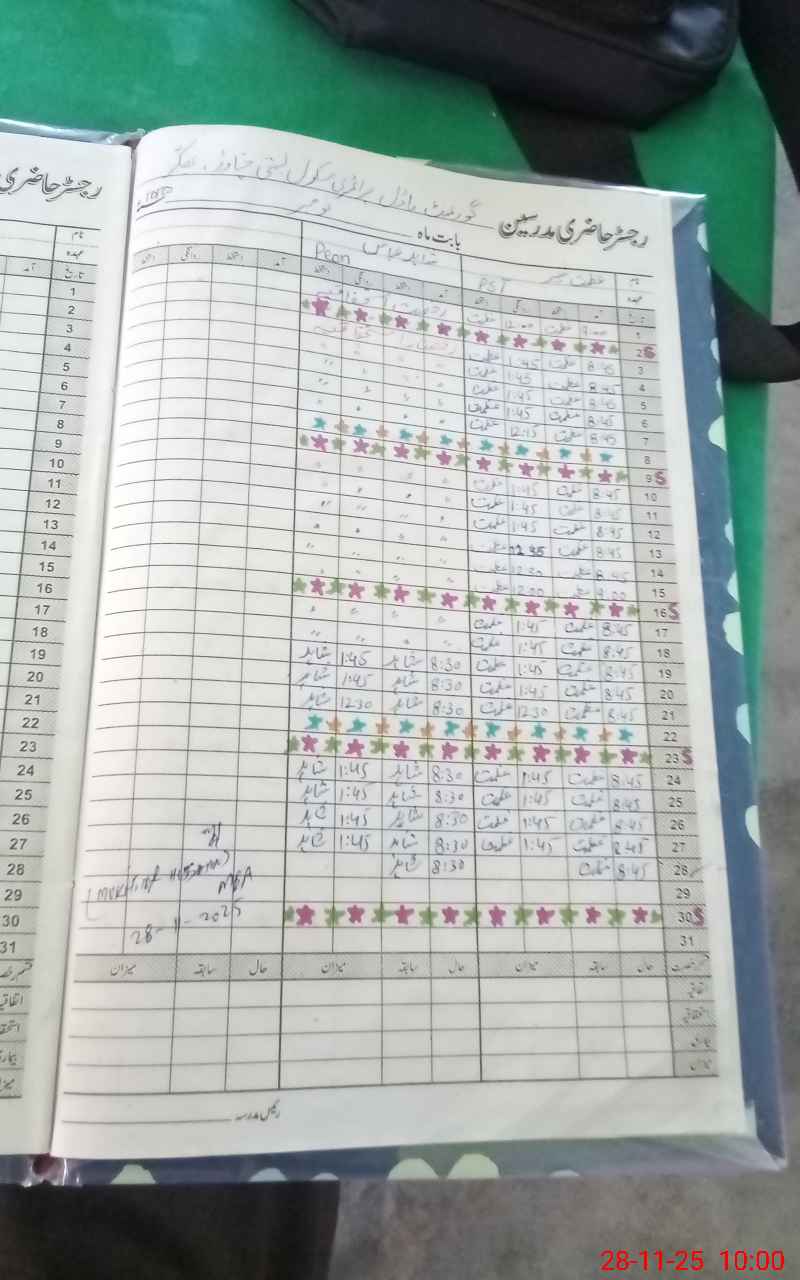 رجسٹر حاضری مدرسین گورنمنٹ ماڈل پرائمری سکول بستی
بابت ماہ نومبر
نام عظمت شاہد عباس
عہدہ PST Peon
تاریخ آمد دستخط روانگی دستخط آمد دستخط روانگی دستخط آمد دستخط روانگی دستخط
1 9:00 عظمت 12:00 عظمت
2 S
3 8:45 عظمت 1:45 عظمت
4 8:45 عظمت 1:45 عظمت
5 8:45 عظمت 1:45 عظمت
6 8:45 عظمت 1:45 عظمت
7 8:45 عظمت 12:15 عظمت
8
9 S
10 8:45 عظمت 1:45 عظمت
11 8:45 عظمت 1:45 عظمت
12 8:45 عظمت 1:45 عظمت
13 8:45 عظمت
14 8:45 عظمت 12:30 عظمت
15 9:00 عظمت 12:00 عظمت
16 S
17 8:45 عظمت 1:45 عظمت
18 8:45 عظمت 1:45 عظمت
19 8:45 عظمت 1:45 عظمت 8:30 شاہد 1:45 شاہد
20 8:45 عظمت 1:45 عظمت 8:30 شاہد 1:45 شاہد
21 8:45 عظمت 12:30 عظمت 8:30 شاہد 12:30 شاہد
22
23 S
24 8:45 عظمت 1:45 عظمت 8:30 شاہد 1:45 شاہد
25 8:45 عظمت 1:45 عظمت 8:30 شاہد 1:45 شاہد
26 8:45 عظمت 1:45 عظمت 8:30 شاہد 1:45 شاہد
27 8:45 عظمت 1:45 عظمت 8:30 شاہد 1:45 شاہد
28 8:45 عظمت 8:30 شاہد
29
30 S
31
MEA
28-11-2025
قسم رخصت حال سابقہ میزان حال سابقہ میزان حال سابقہ میزان
اتفاقیہ
استحقاقیہ
بیماری
میزان
رئیس مدرسہ
رجسٹر حاضری
نام
عہدہ
تاریخ آمد
1
2
3
4
5
6
7
8
9
10
11
12
13
14
15
16
17
18
19
20
21
22
23
24
25
26
27
28
29
30
31
28-11-25 10:00